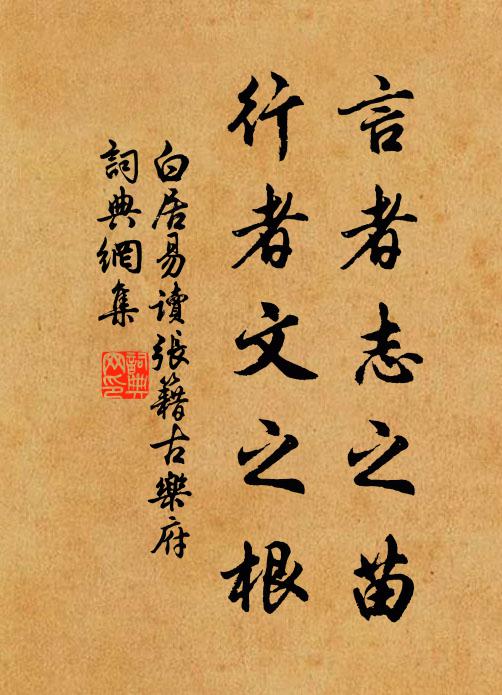 言者志之苗
行者文之根
白居易讀張籍古樂府
詞典網集
詞典網印